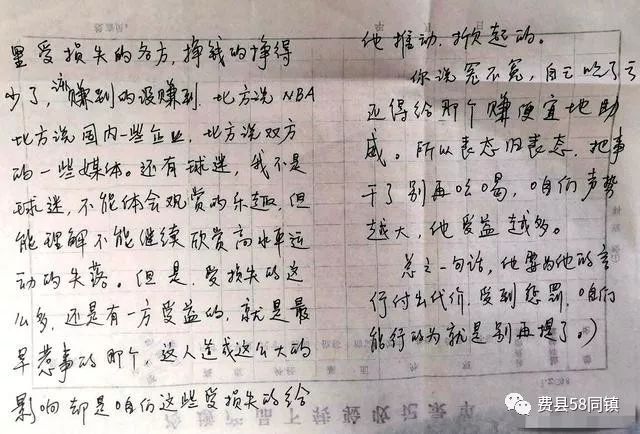 里受损失的各方，挣钱的挣得
少了，该赚到的没赚到，比方说NBA
比方说国内一些企业，比方说双方
的一些媒体。还有球迷，我不是
球迷，不能体会观赏的乐趣，但
能理解不能继续欣赏高水平运
动的失落。但是，受损失的这
么多，还是有一方受益的，就是最
早惹事的那个，这人造成这么大的
影响却是咱们这些受损失的给
他推动，掀起的。
你说冤不冤，自己吃了亏
还得给那个赚便宜地助
威。所以表态归表态，把事
干了别再吆喝，咱们声势
越大，他受益越多。
总之一句话，他要为他的言
行付出代价，受到惩罚，咱们
能行的为就是别再提了。）
费县58同镇